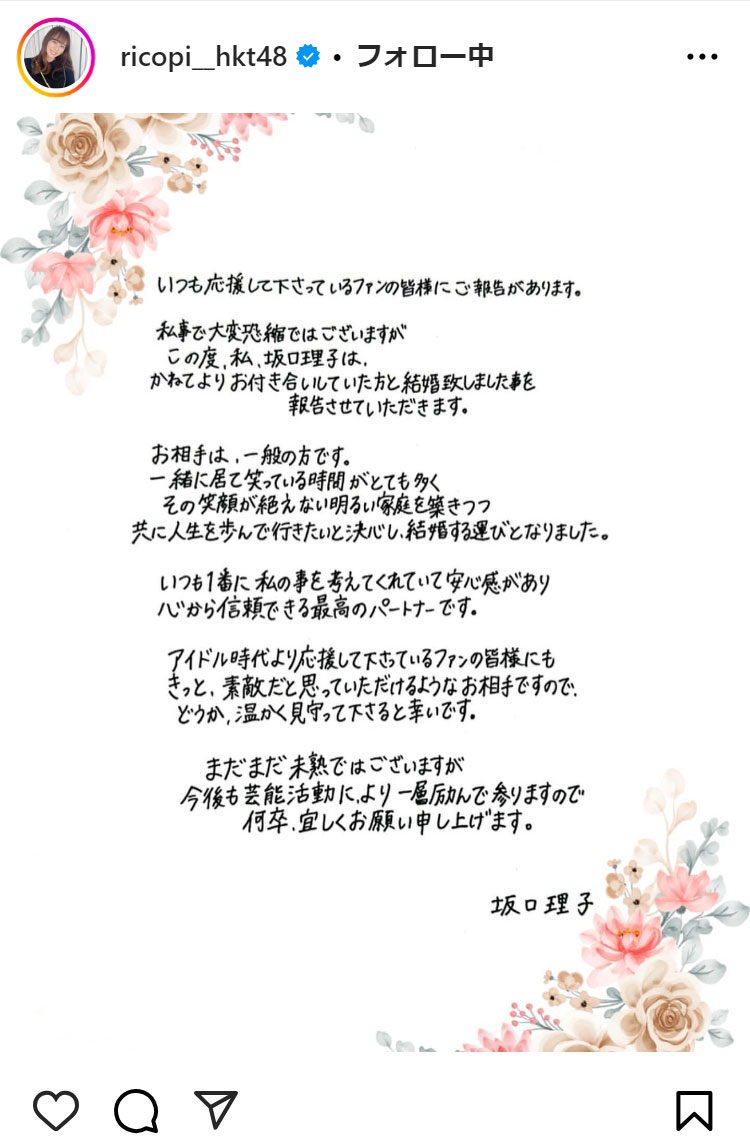 ricopi__hkt48 • フォロー中
いつも応援して下さっているファンの皆様にご報告があります。
私事で大変恐縮ではございますが
この度、私、坂口理子は、
かねてよりお付き合いしていた方と結婚致しました事を
報告させていただきます。
お相手は、一般の方です。
一緒に居て笑っている時間がとても多く
その笑顔が絶えない明るい家庭を築きつつ
共に人生を歩んで行きたいと決心し、結婚する運びとなりました。
いつも1番に私の事を考えてくれていて安心感があり
心から信頼できる最高のパートナーです。
アイドル時代より応援して下さっているファンの皆様にも
きっと、素敵だと思っていただけるようなお相手ですので、
どうか、温かく見守って下さると幸いです。
まだまだ未熟ではございますが
今後も芸能活動に、より一層励んで参りますので
何卒、宜しくお願い申し上げます。
坂口理子